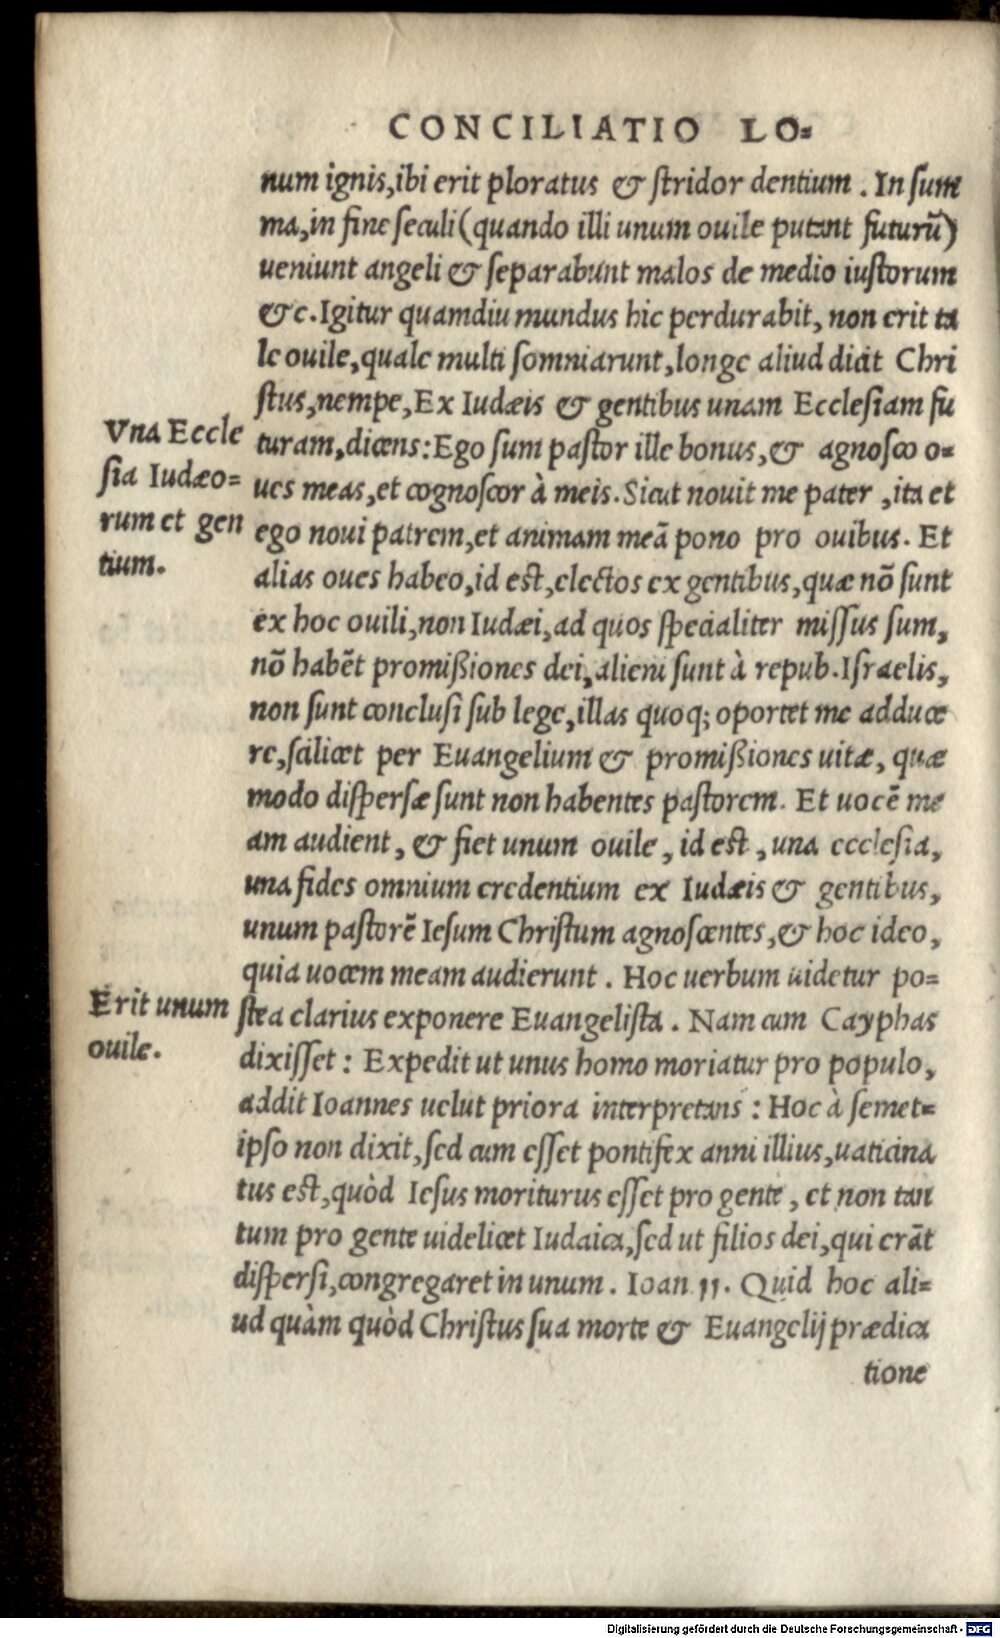 CONCILIATIO LO=
num ignis,ibi erit ploratus & ſtridor dentium . In ſum
ma,in fine ſeculi(quando illi unum ouile putant futurũ)
ueniunt angeli & ſeparabunt malos de medio iuſtorum
&c.Igitur quamdiu mundus hic perdurabit, non erit ta
le ouile,quale multi ſomniarunt,longe aliud dicit Chri
ſtus,nempe,Ex Iudæis & gentibus unam Eccleſiam fu
turam,dicens:Ego ſum paſtor ille bonus,& agnoſco o=
ues meas,et cognoſcor à meis.Sicut nouit me pater ,ita et
ego noui patrem,et animam meã pono pro ouibus. Et
alias oues habeo,id eſt,electos ex gentibus,quæ nõ ſunt
ex hoc ouili,non Iudæi,ad quos ſpecialiter miſſus ſum,
nõ habẽt promißiones dei,alieni ſunt à repub.Iſraelis,
non ſunt concluſi ſub lege,illas quoq; oportet me adduce
re,ſcilicet per Euangelium & promißiones uitæ, quæ
modo diſperſæ ſunt non habentes paſtorem. Et uocẽ me
am audient, & fiet unum ouile , id eſt , una eccleſia,
una fides omnium credentium ex Iudæis & gentibus,
unum paſtorẽ Ieſum Chriſtum agnoſcentes,& hoc ideo,
quia uocem meam audierunt . Hoc uerbum uidetur po=
ſtea clarius exponere Euangeliſta . Nam cum Cayphas
dixiſſet : Expedit ut unus homo moriatur pro populo,
addit Ioannes uelut priora interpretans : Hoc à ſemet=
ipſo non dixit,ſed cum eſſet pontifex anni illius,uaticina
tus eſt,quòd Ieſus moriturus eſſet pro gente , et non tan
tum pro gente uidelicet Iudaica,ſed ut filios dei,qui erãt
diſperſi,congregaret in unum . Ioan 11. Quid hoc ali=
ud quàm quòd Chriſtus ſua morte & Euangelij prædica
tione
Vna Eccle
ſia Iudæo=
rum et gen
tium.
Erit unum
ouile.
Digitalisierung gefördert durch die Deutsche Forschungsgemeinschaft - DFG